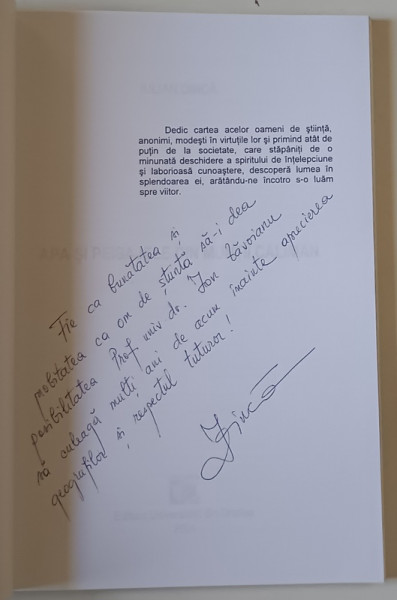 Dedic cartea acelor oameni de ştiinţă,
anonimi, modeşti în virtuţile lor şi primind atât de
puţin de la societate, care stăpâniţi de o
minunată deschidere a spiritului de înţelepciune
şi laborioasă cunoaştere, descoperă lumea în
splendoarea ei, arătându-ne încotro s-o luăm
spre viitor.
Fie ca bunătatea și
probitatea ca om de știință să-i dea
posibilitatea Prof. univ. dr. Ion Zăvoianu
să culeagă mulți ani de acum înainte aprecierea
geografilor și respectul tuturor!